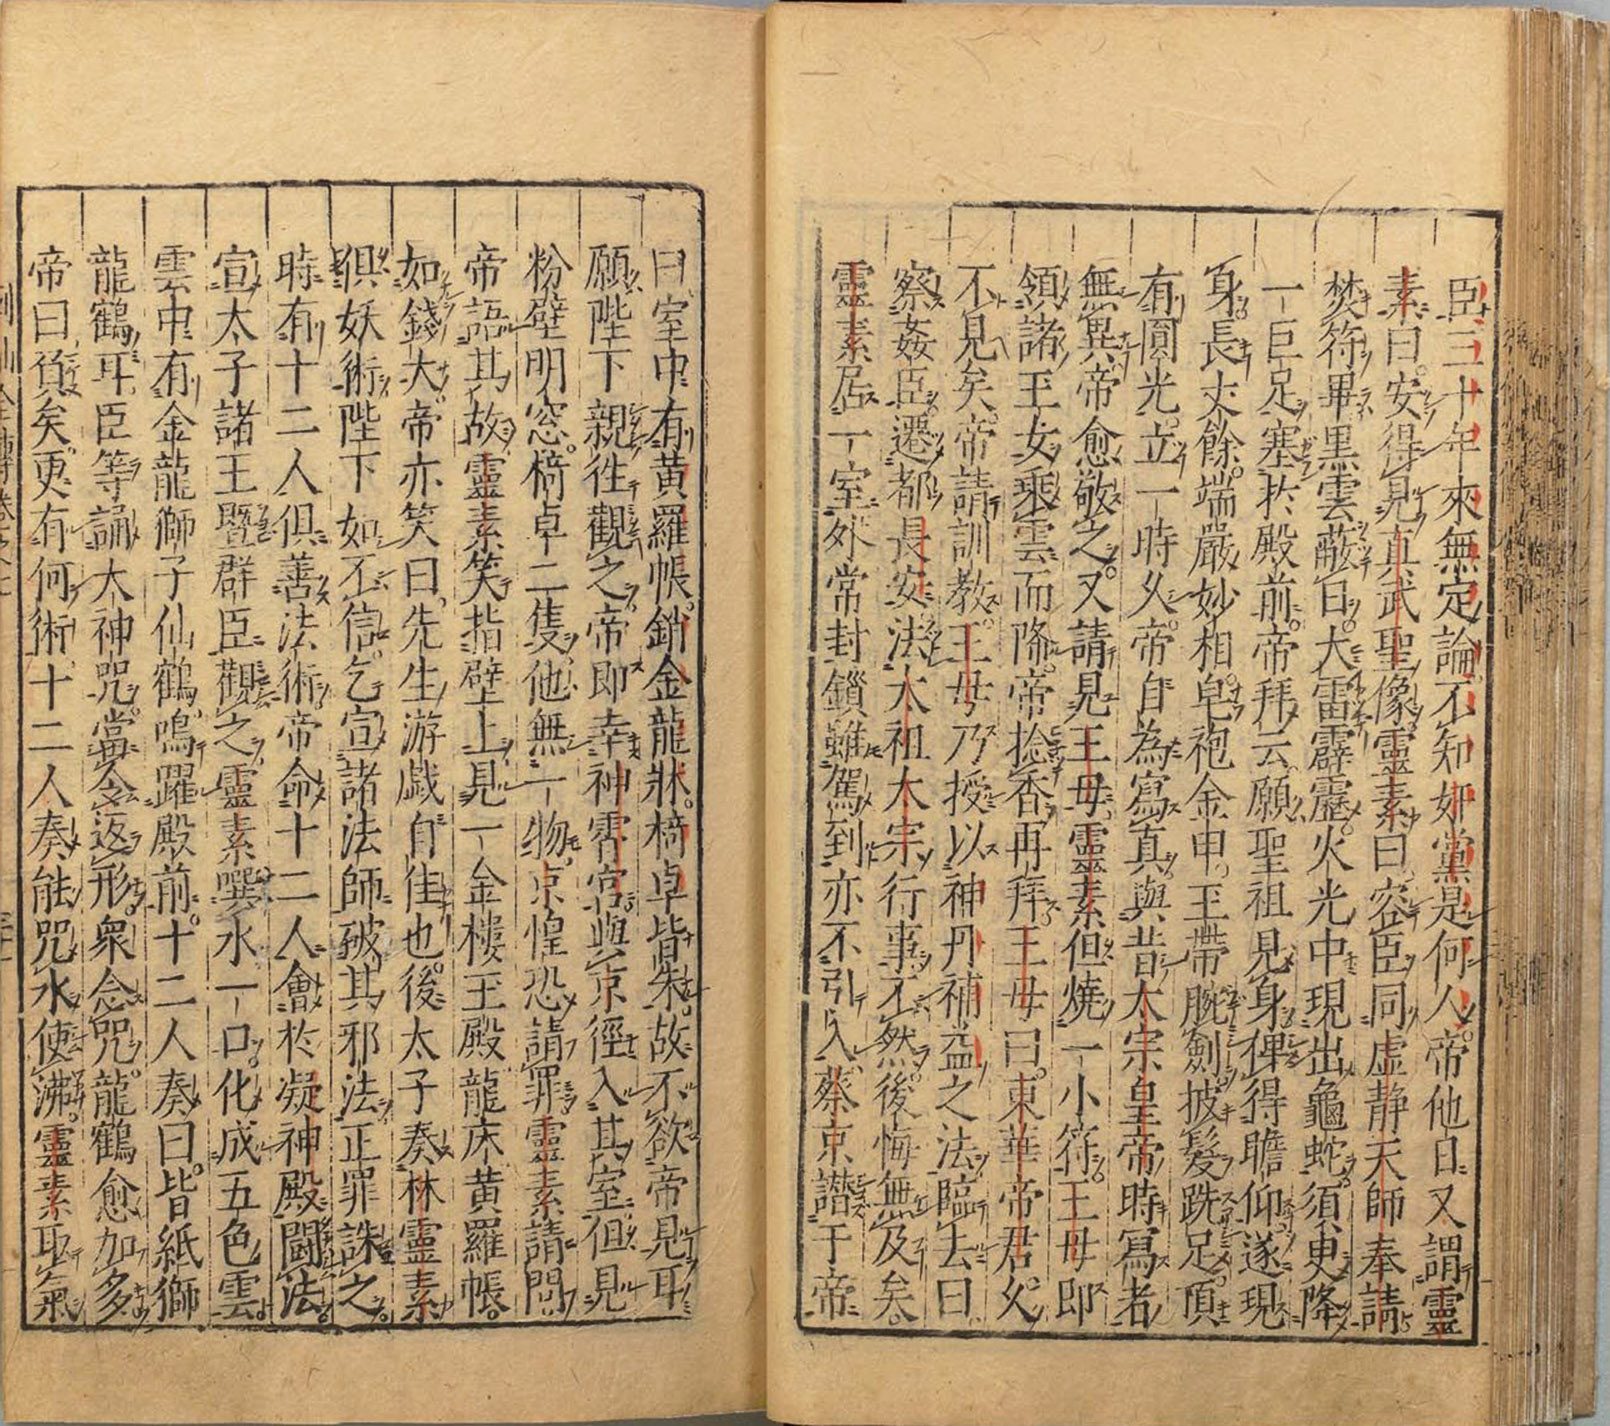 臣三十年來無定論不知奸黨是何人帝他日又謂靈
素曰安得見真武聖像靈素曰容臣同虛静天師奉請
焚符畢黑雲蔽日大雷霹靂火光中現出龜蛇須臾降
一巨足塞於殿前帝拜云願聖祖見身俾得瞻仰遂現
身長丈餘端嚴妙相皂袍金甲玉帶腕劍披髮跣足頂
有圓光立一時久帝自為寫真與昔太宗皇帝時寫者
無異帝愈敬之又請見王母靈素但燒一小符王母即
領諸玉女乘雲而降帝捻香再拜王母曰東華帝君久
不見矣帝請訓教王母乃授以神丹補益之法臨去曰
察姦臣遷都長安法太祖太宗行事不然後悔無及矣
靈素居一室外常封鎖雖駕到亦不引入蔡京譖于帝
曰室中有黄羅帳銷金龍牀椅卓皆朱故不欲帝見耳
願陛下親徃觀之帝即幸神霄宫與京徑入其室但見
粉壁明窓椅卓二隻他無一物京惶恐請罪靈素請問
帝語其故靈素笑指壁上見一金樓玉殿龍床黄羅帳
如錢大帝亦笑曰先生游戯自佳也後太子奏林靈素
俱妖術陛下如不信乞宣諸法師破其邪法正罪誅之
時有十二人俱善法術帝命十二人會於凝神殿鬪法
宣太子諸王暨群臣觀之靈素噀水一口化成五色雲
雲中有金龍獅子仙鶴鳴躍殿前十二人奏曰皆紙獅
龍鶴耳臣等誦太神咒當令返形衆念咒龍鶴愈加多
帝曰負矣更有何術十二人奏能咒水使沸靈素取氣